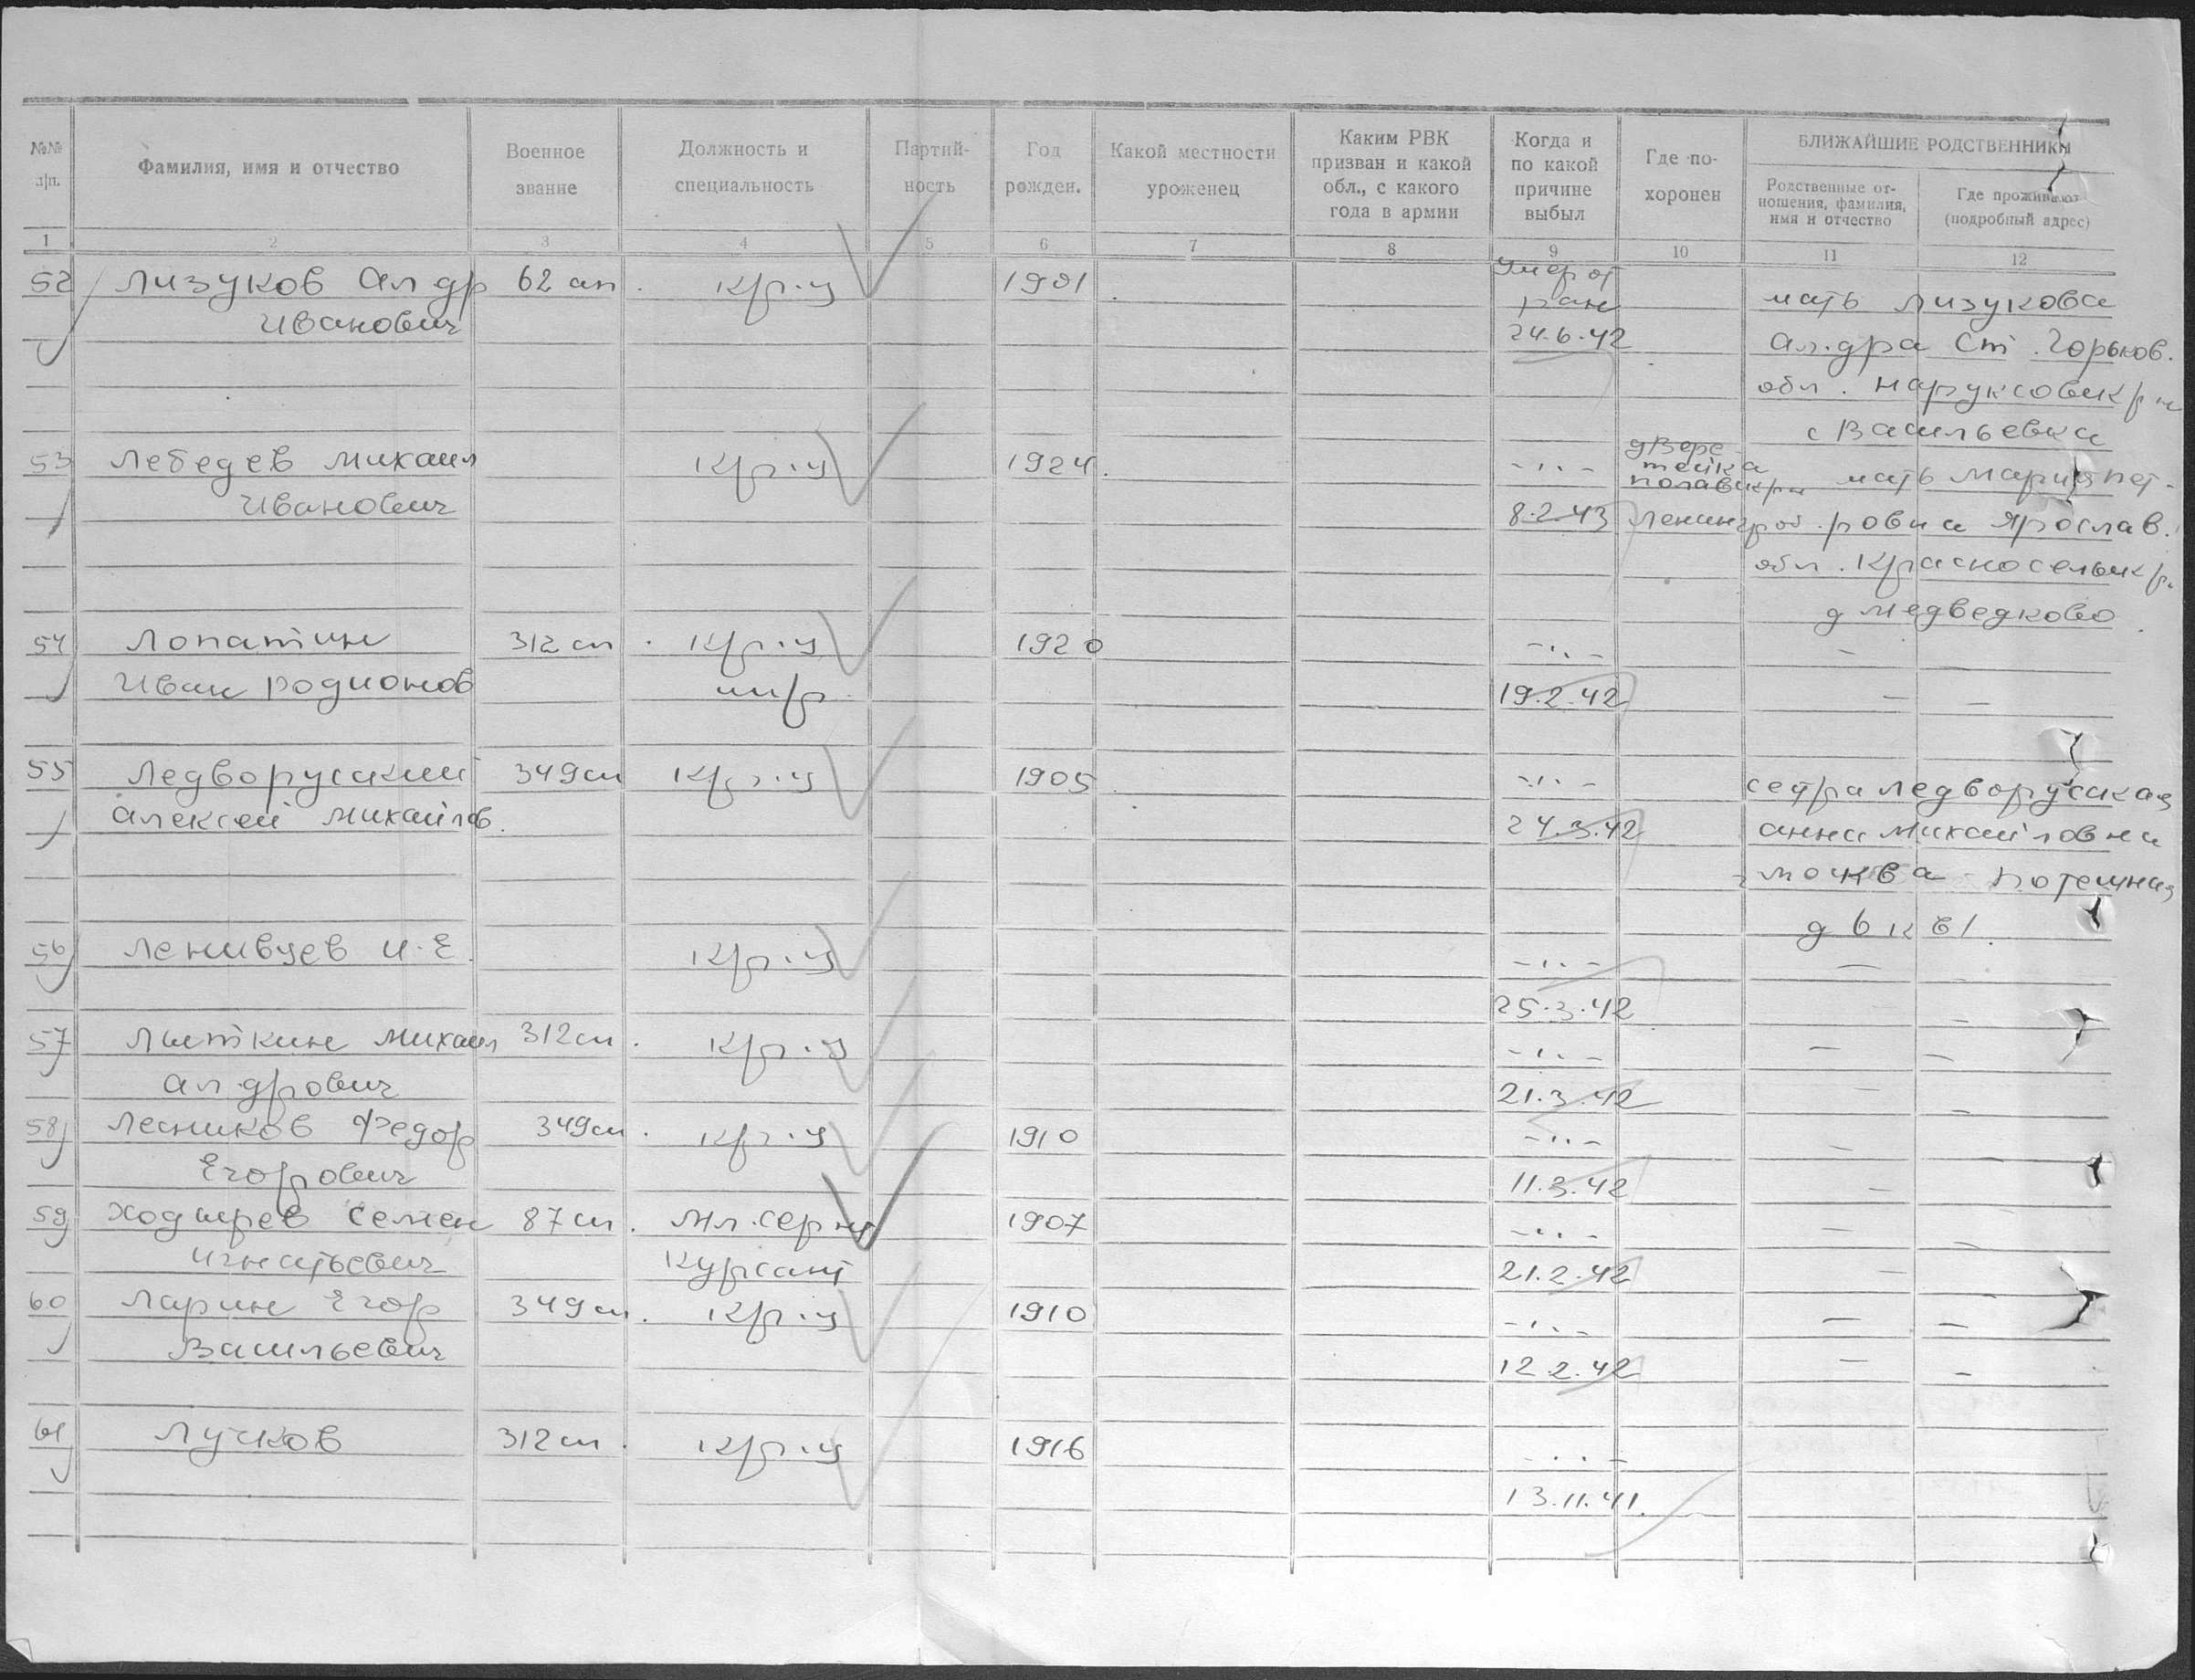 №№ п/п.
Фамилия, имя и отчество
Военное звание
Должность и специальность
Партий-ность
Год рожден.
Какой местности уроженец
Каким РВК призван и какой обл., с какого года в армии
Когда и по какой причине выбыл
Где по-хоронен
БЛИЖАЙШИЕ РОДСТВЕННИКИ
Родственные от-ношения, фамилия, имя и отчество
Где проживают (подробный адрес)
1 2 3 4 5 6 7 8 9 10 11 12
52 Лизуков Ал др 62 ап. кр-ц 1901 Умер от
Иванович ран мать Лизукова
24.6.42 Ал.дра Ст. Горьков.
обл. Наруксовск р н
с Васильевка
53 Лебедев Михаил кр-ц 1924. -"- д Вере-
тейка
мать Мария Пет-
Иванович 8.2.43 Ленинград. ровна Ярослав.
обл. Красносельск р.
д Медведково
54 Лопатин 312 сп. кр-ц 1920 -"- - -
Иван Родионов 19.2.42 - -
55 Ледворуский 349 сп кр-ц 1905 -"- сестра Ледворуская
Алексей Михайлов. 24.3.42 Анна Михайловна
Москва Потешная
д 6 к 61.
56 Ленивцев И.Е. кр-ц -"- -
25.3.42 -
57 Лыткин Михаил 312 сп. кр-ц -"- - -
Ал дрович 21.3.42 - -
58 Лесников Федор 349 сп. кр-ц 1910 -"- -
Егорович 11.3.42 -
59 Ходырев Семен 87 сп. мл. серж 1907 -"- - -
Игнатьевич курсант 21.2.42 -
60 Ларин Егор 349 сп. кр-ц 1910 -"- - -
Васильевич 12.2.42 - -
61 Лучков 312 сп. кр-ц 1916 -"-
13.11.41.